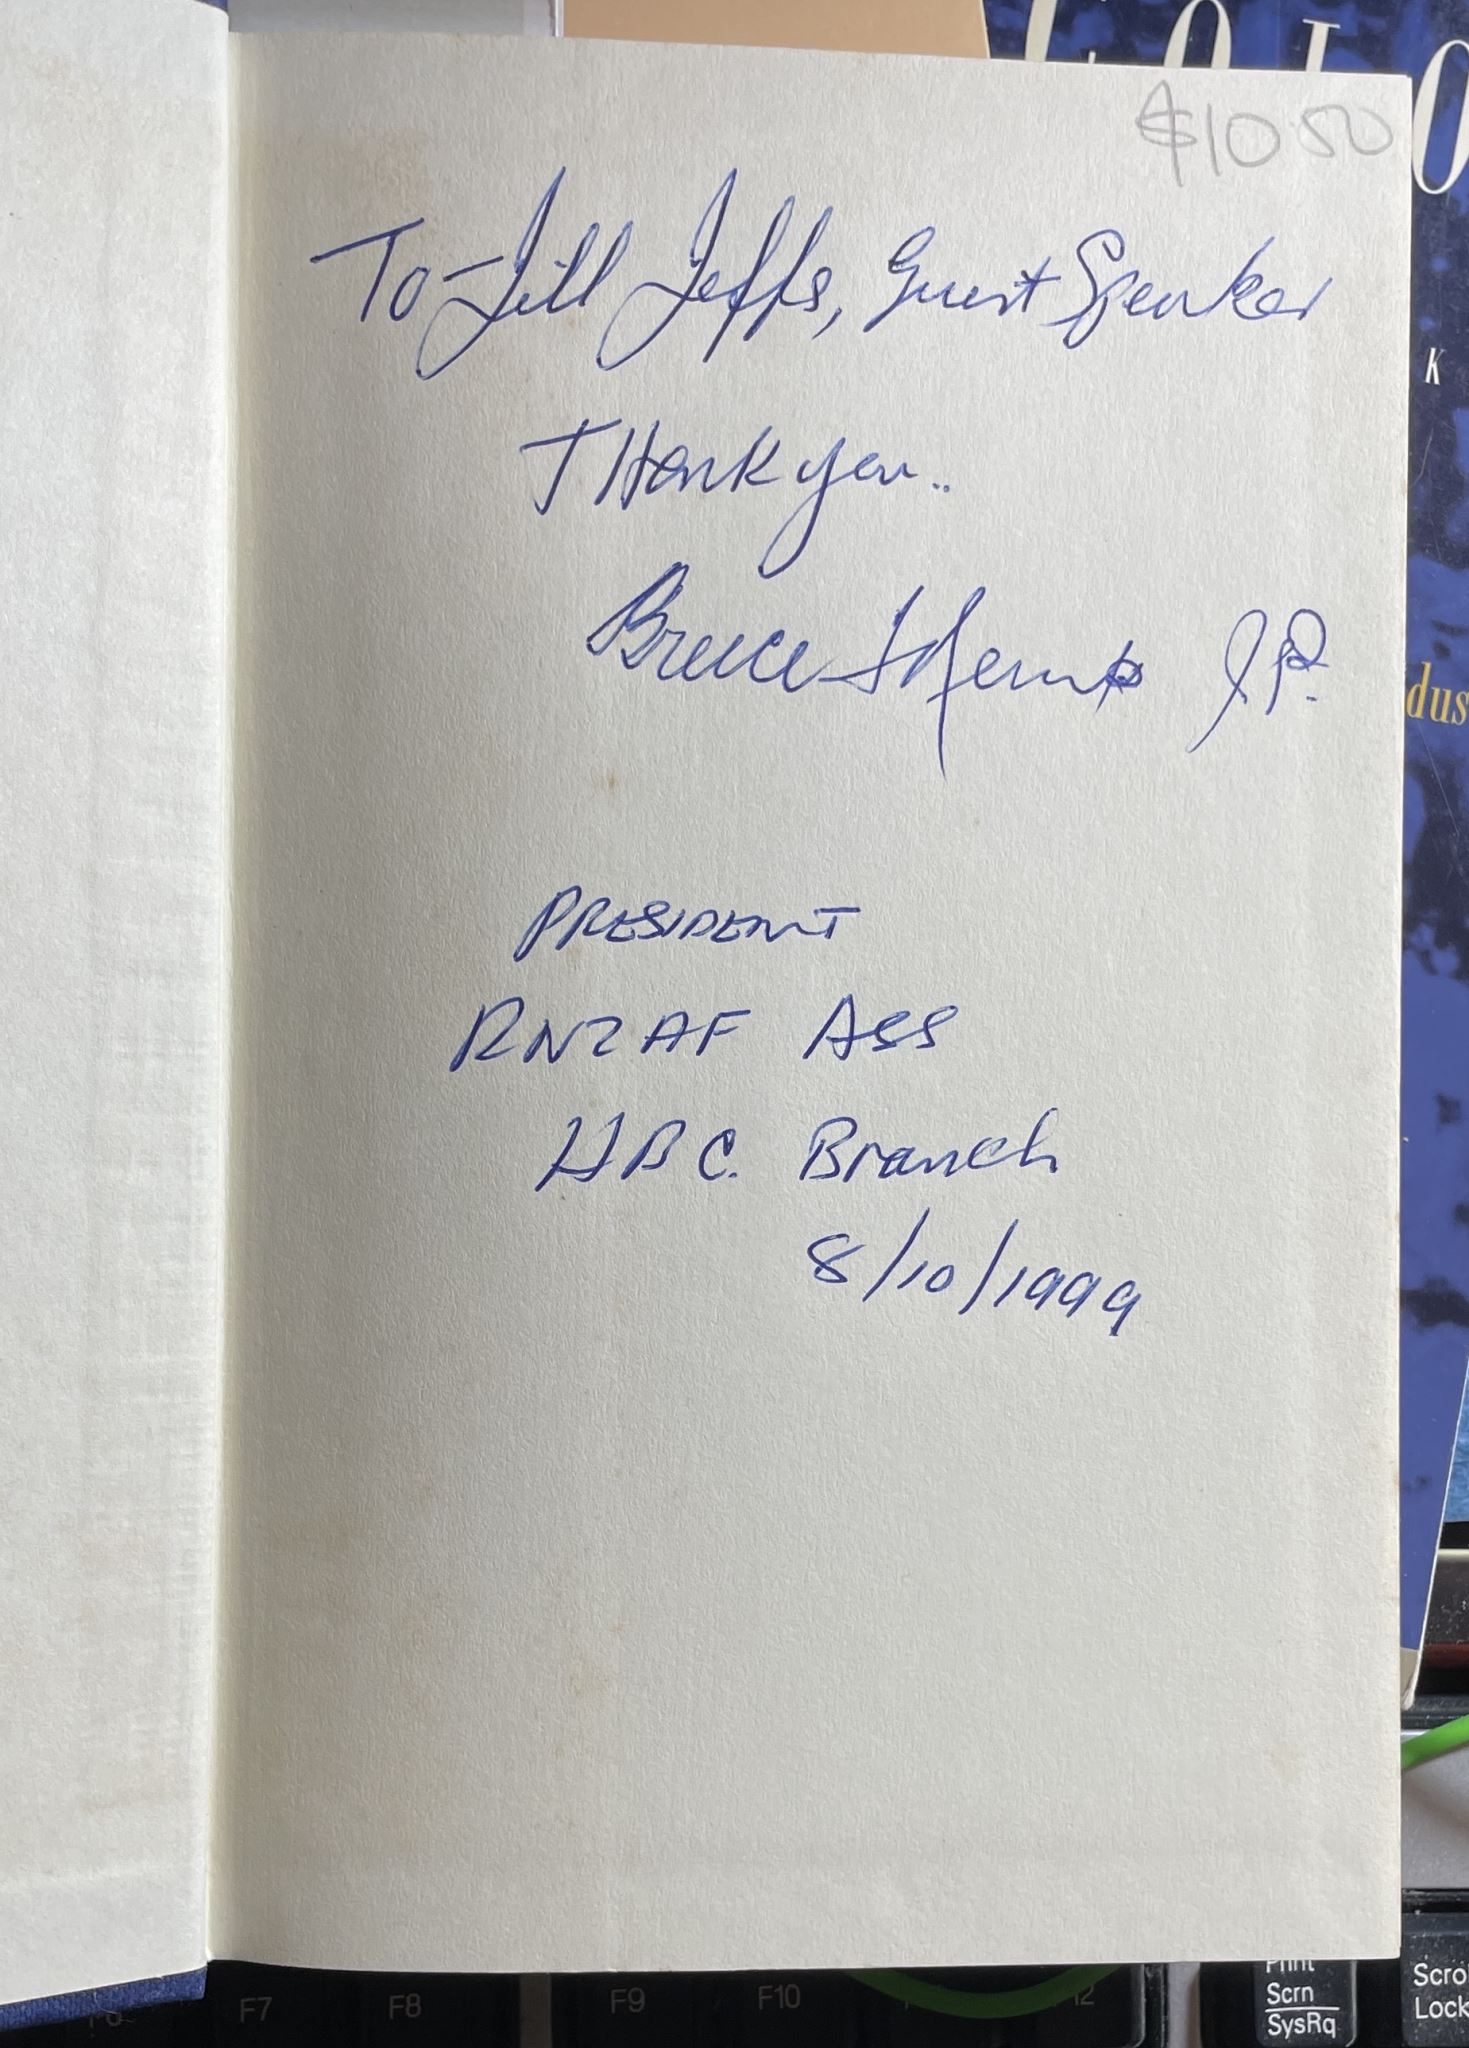 $10.50
To Jill Jeffs, Guest Speaker
THank you..
Bruce J.P.
PRESIDENT
RNZAF ASS
HBC. Branch
8/10/1999
K
dus
F6 F7 F8 F9 F10 12
Print
Scrn
SysRq
Scro
Lock